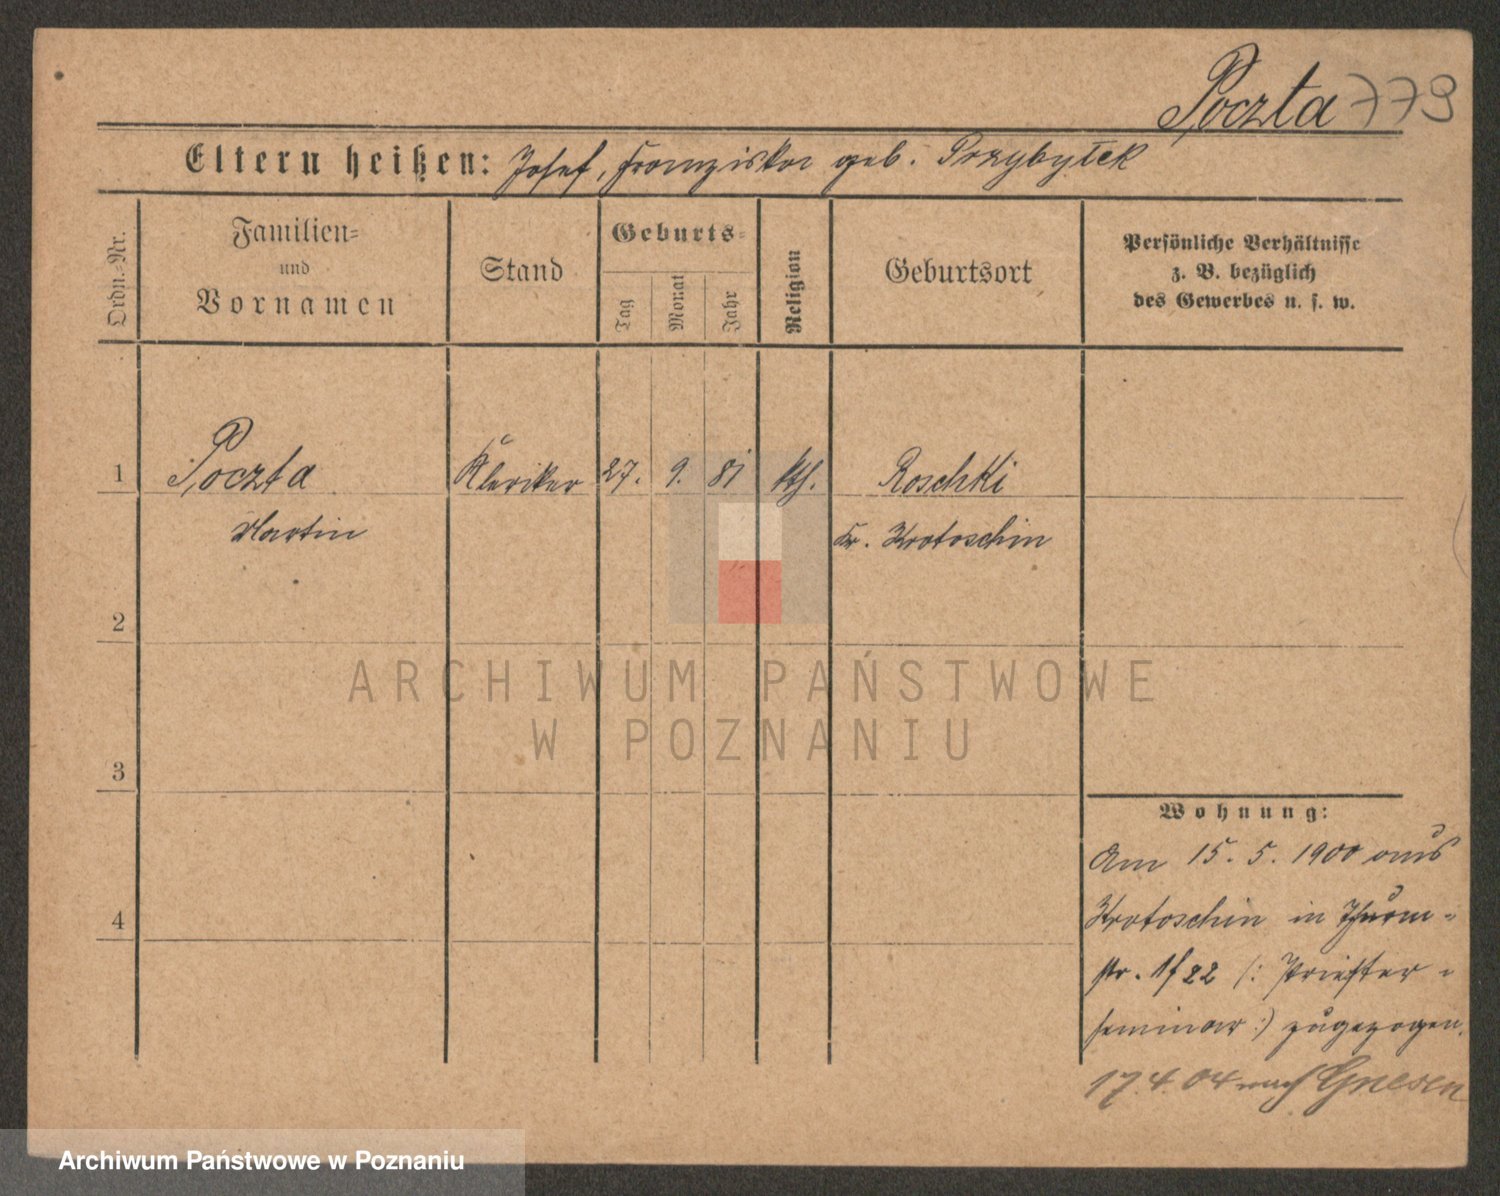 Poczta 779
Eltern heißen: Josef, Franziska geb. Przybyłek
Ordn.=Nr.
Familien=
und
Vornamen
Stand
Geburts=
Tag
Monat
Jahr
Religion
Geburtsort
Persönliche Verhältnisse
z. B. bezüglich
des Gewerbes u. s. w.
1 Poczta Kleriker 27. 9. 81 kth. Roschki
Martin Kr. Krotoschin
2
ARCHIWUM PAŃSTWOWE
W POZNANIU
3
Wohnung:
Am 15. 5. 1900 aus
Krotoschin in Thurm=
str. 1/22 (: Priester=
seminar :) zugezogen.
4
17.4.04 nach Gnesen
Archiwum Państwowe w Poznaniu